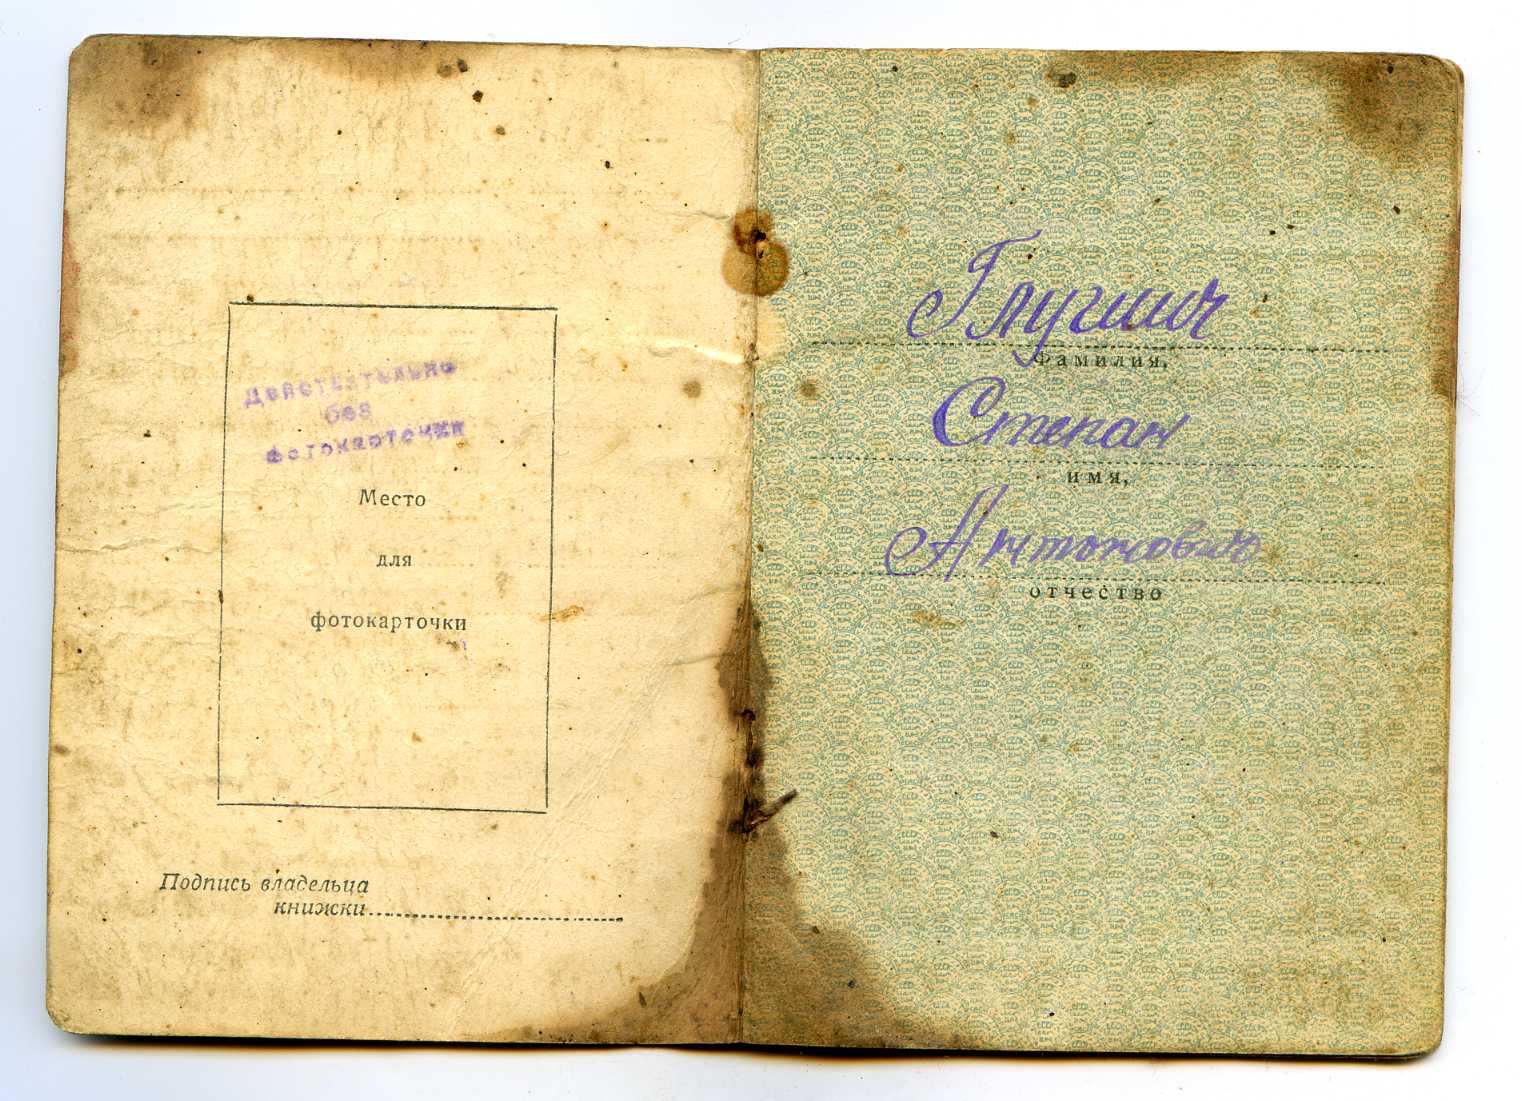 Действительно
без
фотокарточки
Место
для
фотокарточки
Подпись владельца
книжки
фамилия,
Степан
имя,
Антонович
отчество